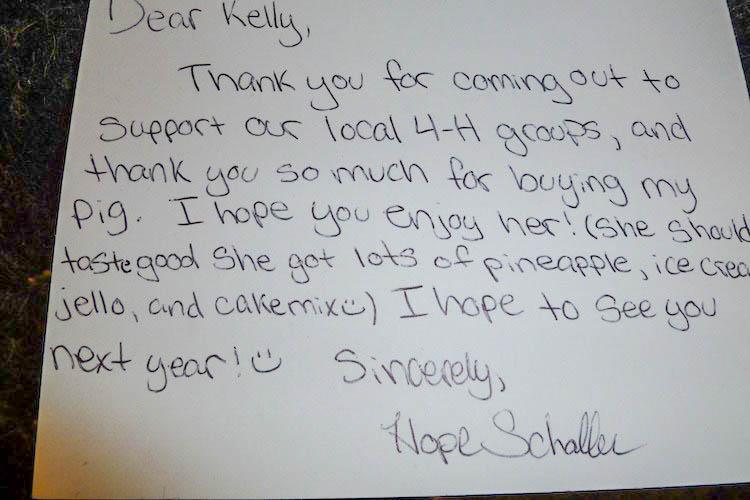 Dear Kelly,
Thank you for coming out to
support our local 4-H groups, and
thank you so much for buying my
pig. I hope you enjoy her! (She should
taste good she got lots of pineapple, ice crea
jello, and cakemix☺) I hope to see you
next year! ☺ Sincerely,
Hope Schaller